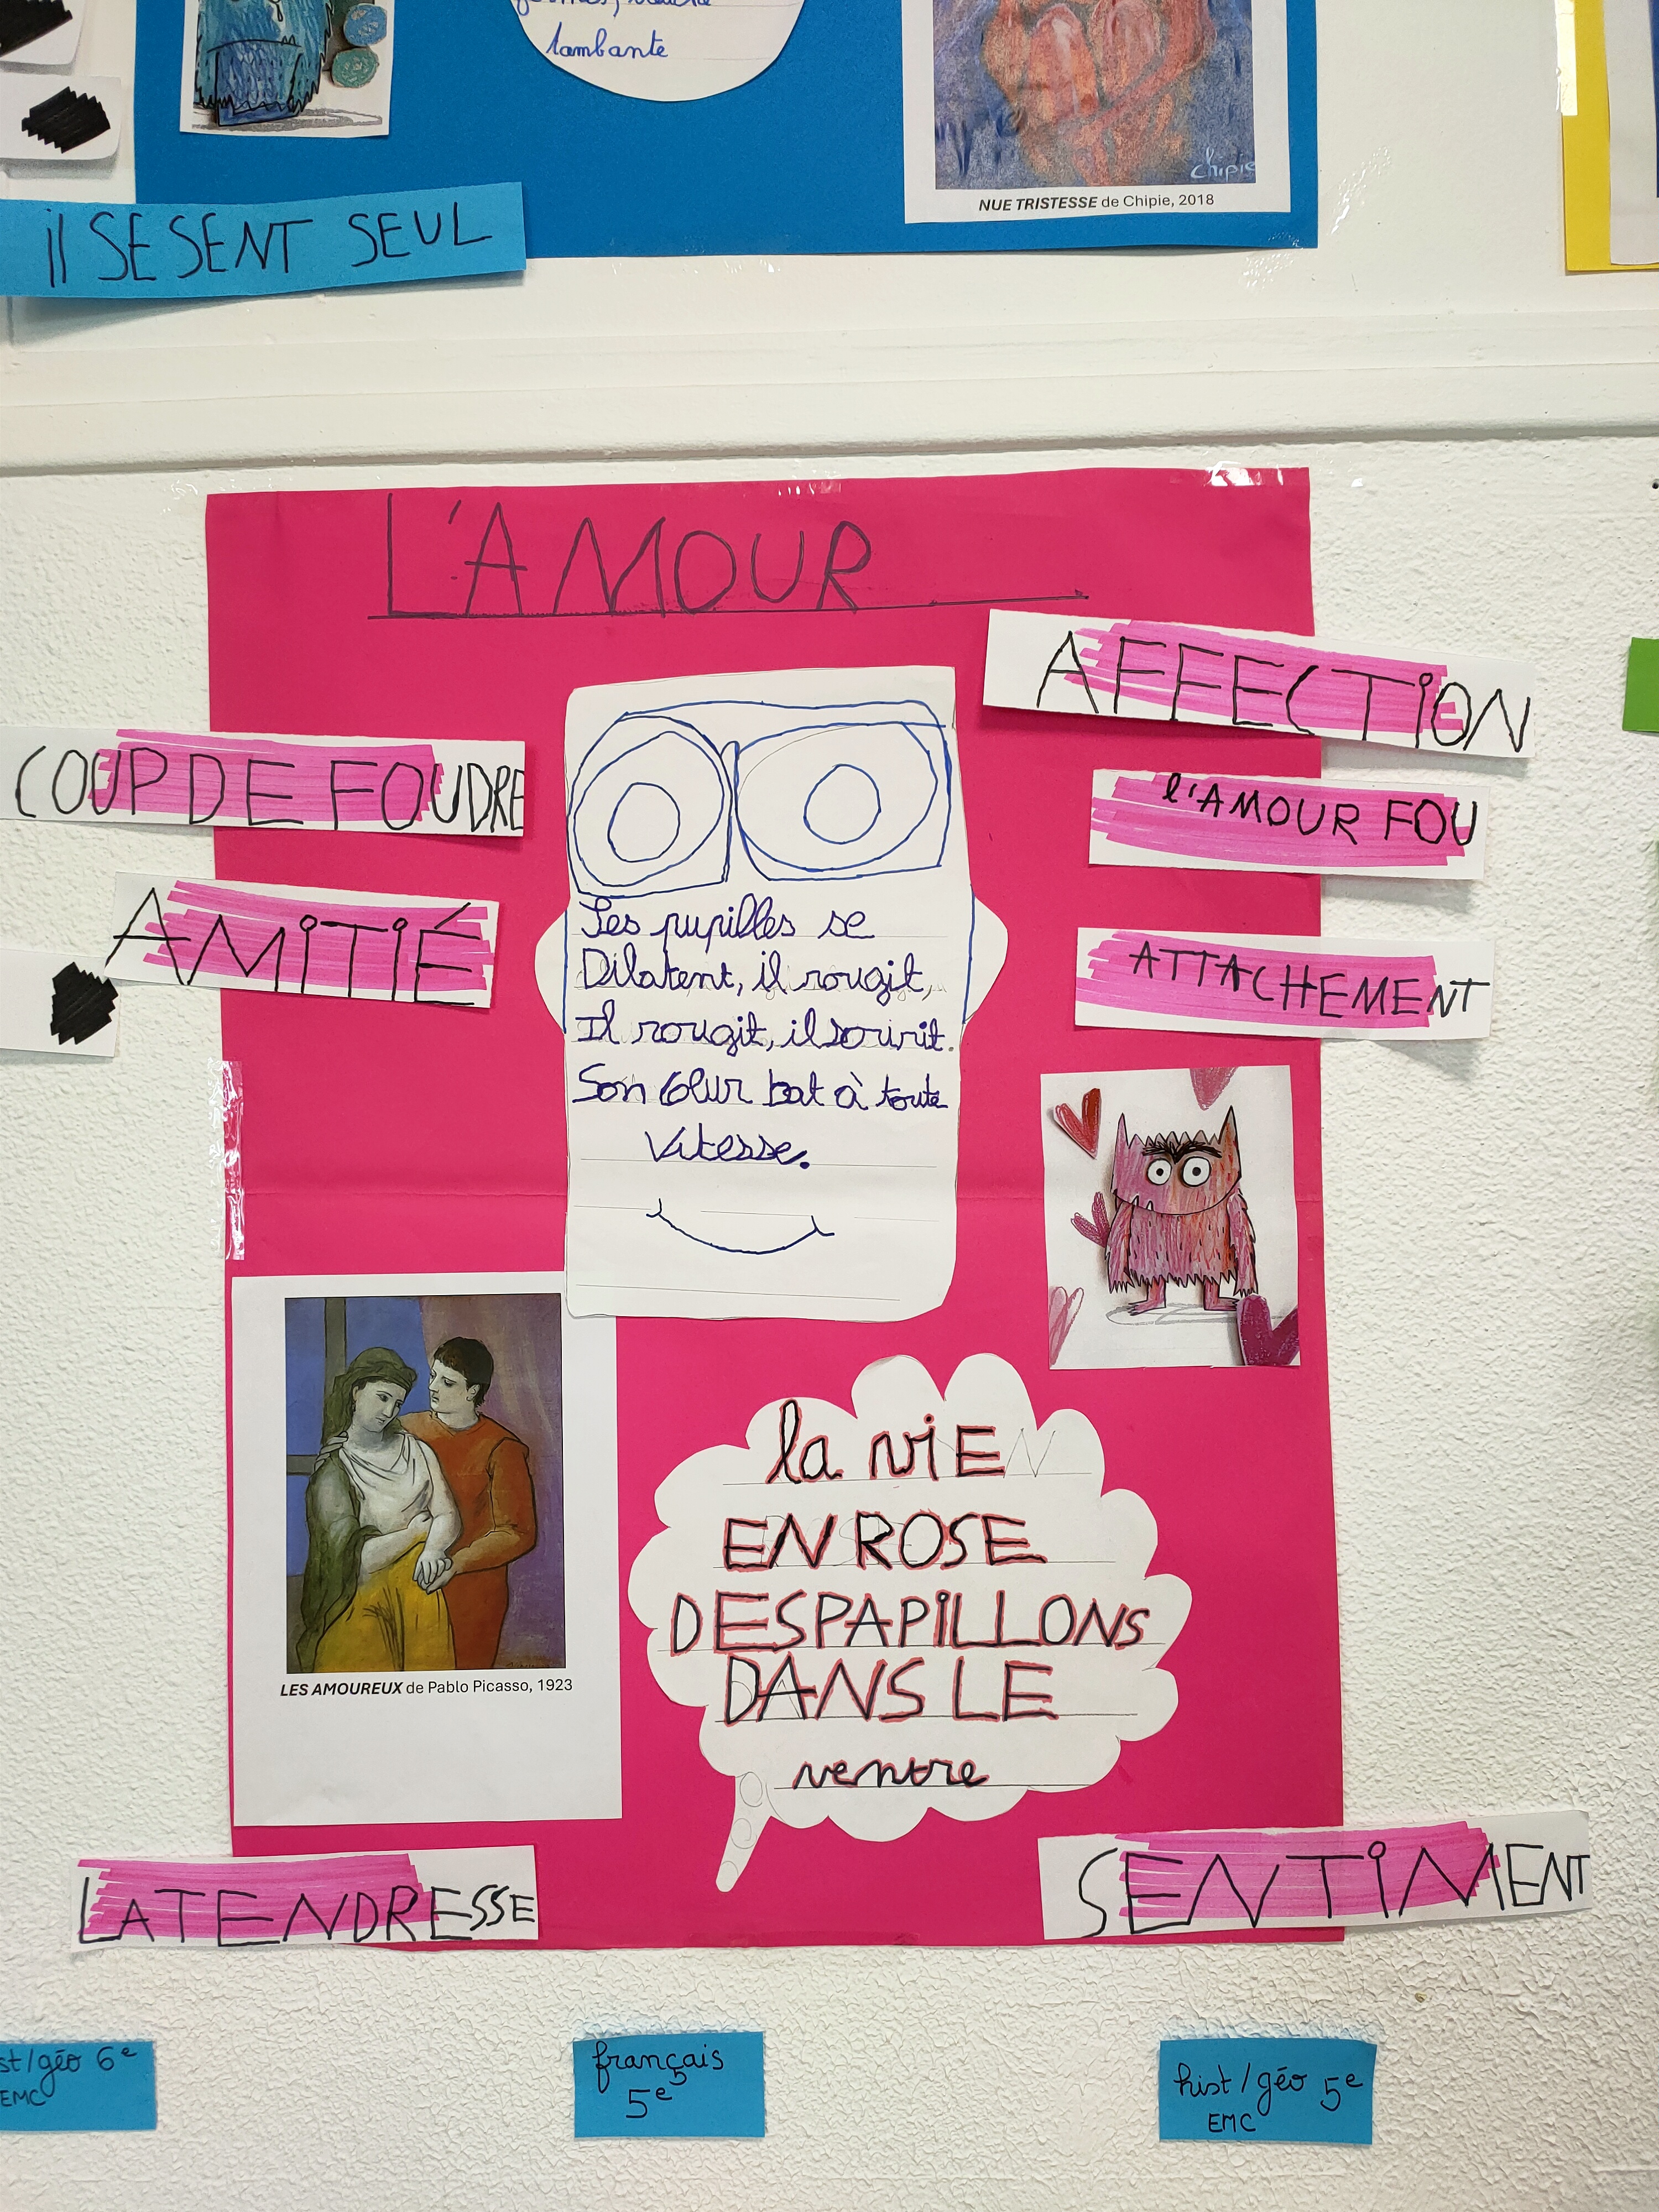 lambante
chipie
NUE TRISTESSE de Chipie, 2018
il SE SENT SEUL
L'AMOUR
AFFECTiON
COUP DE FOUDRE
l'AMOUR FOU
AMiTiÉ
ATTACHEMENT
Les pupilles se
Dilatent, il rougit,
Il rougit, il sourit.
Son cœur bat à toute
Vitesse.
la viE
EN ROSE
DES PAPiLLONS
DANS LE
ventre
LES AMOUREUX de Pablo Picasso, 1923
LA TENDRESSE
SENTiMENT
st/géo 6e
EMC
français
5e
hist/géo 5e
EMC